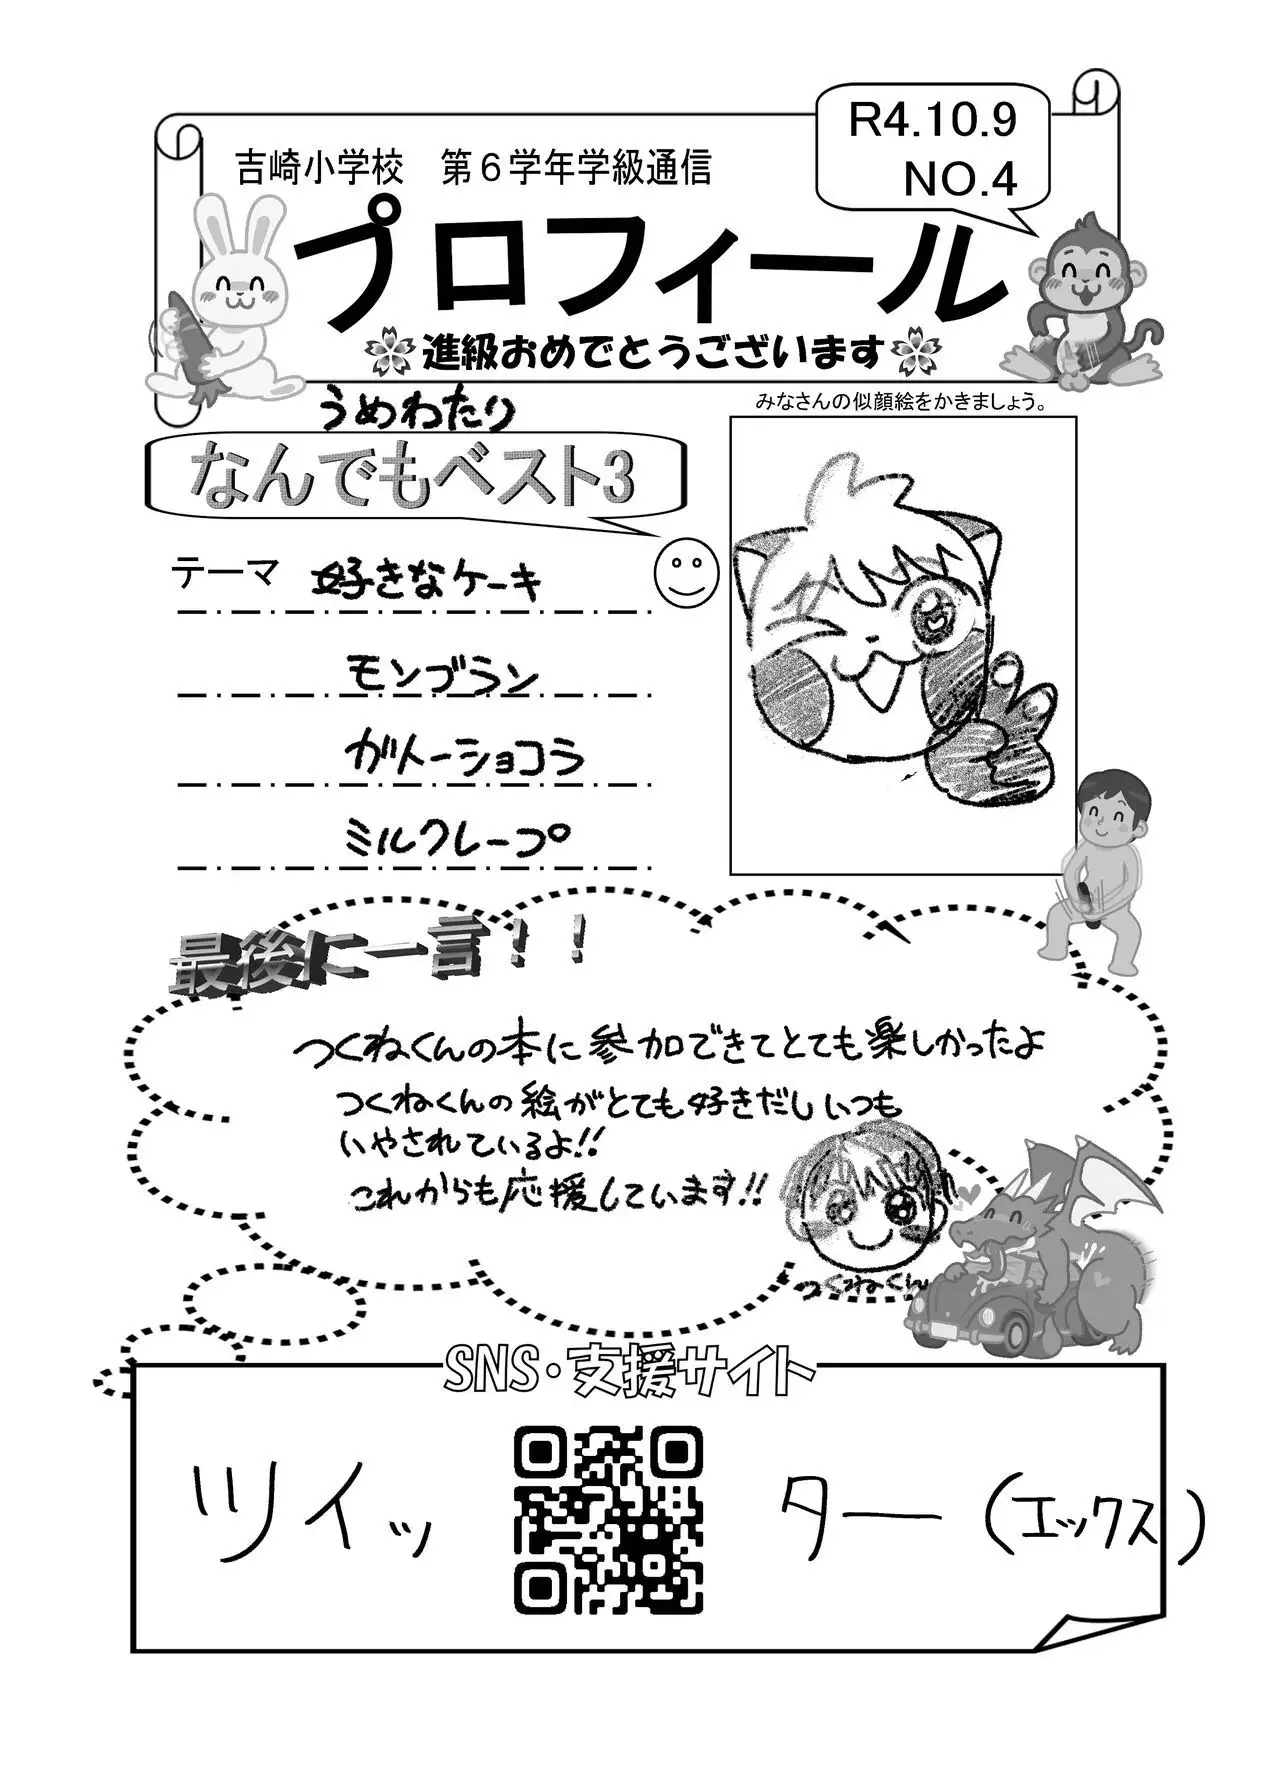 R4.10.9
NO.4
吉崎小学校 第6学年学級通信
プロフィール
進級おめでとうございます
うめわたり
みなさんの似顔絵をかきましょう。
なんでもベスト3
テーマ 好きなケーキ
モンブラン
ガトーショコラ
ミルクレープ
最後に一言!!
つくねくんの本に参加できてとても楽しかったよ
つくねくんの絵がとても好きだしいつも
いやされているよ!!
これからも応援しています!!
つくねくん
SNS・支援サイト
ツイッター(エックス)